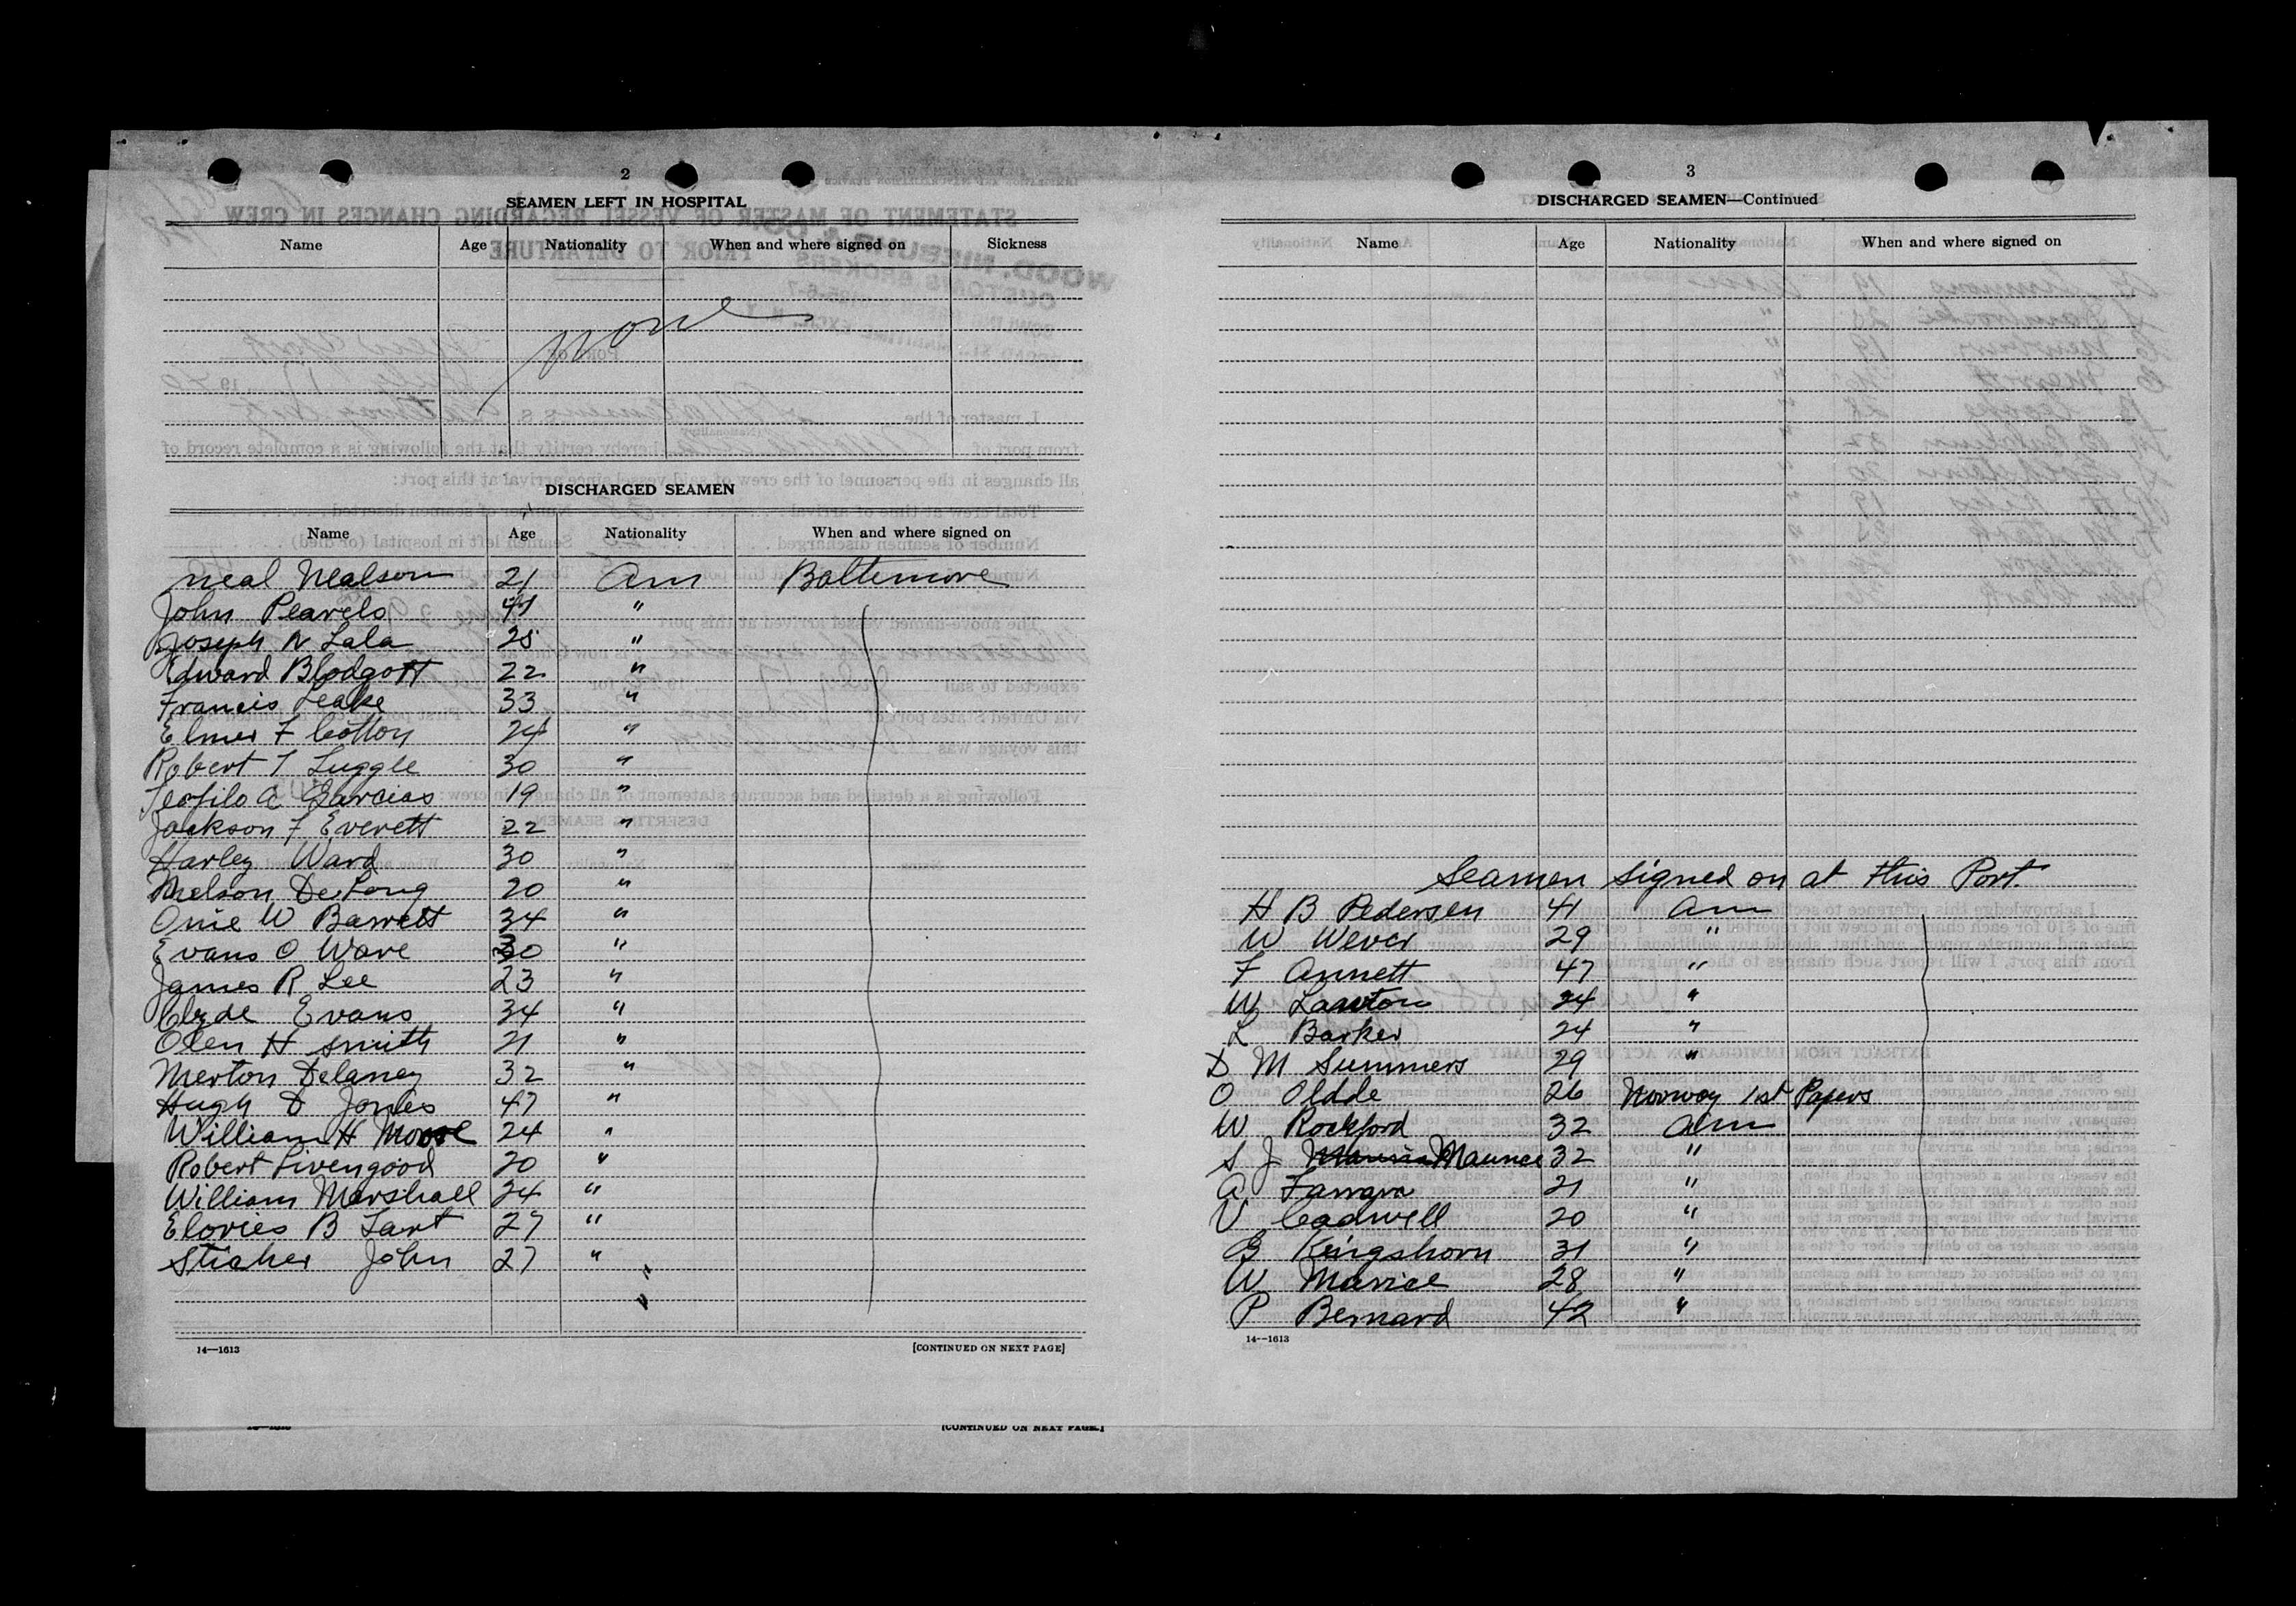 2
SEAMEN LEFT IN HOSPITAL
Name Age Nationality When and where signed on Sickness
None
DISCHARGED SEAMEN
Name Age Nationality When and where signed on
Neal Nealson 21 Am Baltimore
John Pearels 41 "
Joseph N Lala 25 "
Edward Blodgott 22 "
Francis Leake 33 "
Elmer F Cotton 24 "
Robert T Luggle 30 "
Teofilo A Garcias 19 "
Jackson F Everett 22 "
Harley Ward 30 "
Melson DeLong 20 "
Onie W Barrett 34 "
Evans O Ware 30 "
James R Lee 23 "
Clyde Evans 34 "
Olen H Smith 21 "
Merton Delaney 32 "
Hugh D Jones 47 "
William H Moore 24 "
Robert Livengood 20 "
William Marshall 24 "
Elories B Lart 27 "
Stiaher John 27 "
"
"
14—1613 [CONTINUED ON NEXT PAGE]
[CONTINUED ON NEXT PAGE.]
3
DISCHARGED SEAMEN—Continued
Name Age Nationality When and where signed on
Seamen signed on at this Port.
H B Pedersen 41 Am
W Wever 29 "
F Annett 47 "
W Lawton 24 "
L Barker 24 "
D M Summers 29 "
O Oldde 26 Norway 1st Papers
W Rockford 32 Am
S J Maurice 32 "
A Farrara 21 "
V Cadwell 20 "
G Kingshorn 31 "
W Maurice 28 "
P Bernard 42 "
14—1613